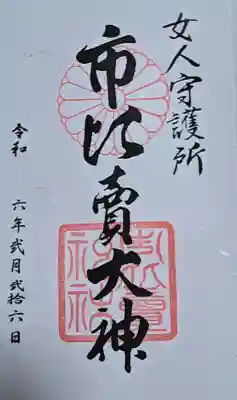 女人守護所
市比賣大神
令和 六年 弐月 弐拾六日